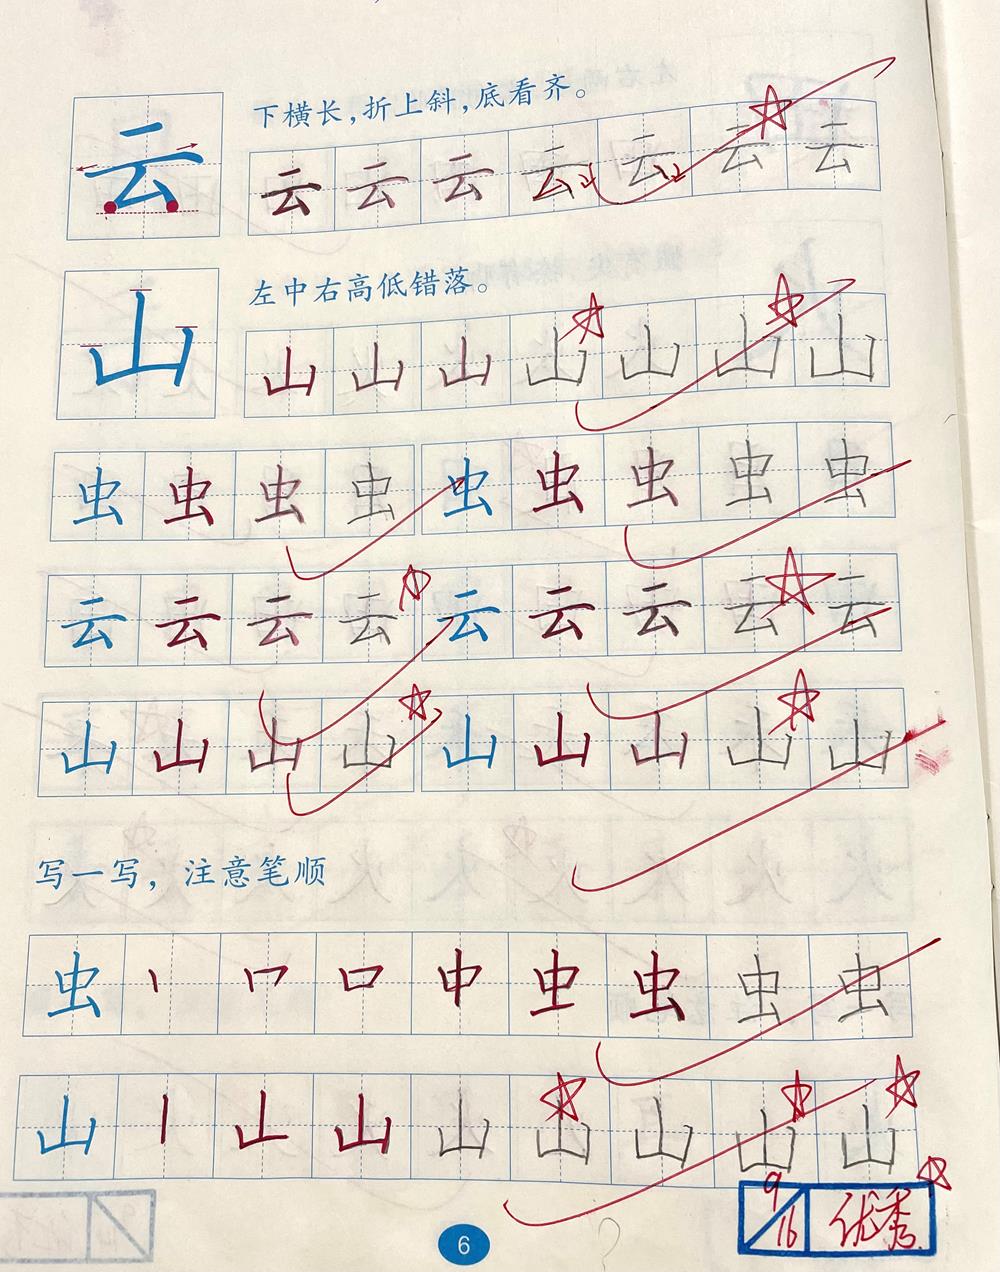 下横长，折上斜，底看齐。
云 云 云 云 云 云 云 云
左中右高低错落。
山 山 山 山 山 山 山 山
虫 虫 虫 虫 虫 虫 虫 虫 虫
云 云 云 云 云 云 云 云 云
山 山 山 山 山 山 山 山 山
写一写，注意笔顺
虫 丨 口 中 虫 虫 虫 虫
山 丨 山 山 山 山 山 山
9/16 优秀
6